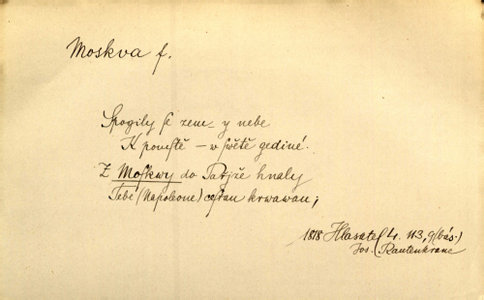 Moskva f.
Spogily se zem_ y nebe
K powěstě – w swětě gediné.
Z Moskwy do Paržjže hnaly
Tebe (Napoleone) cestau krwawau;
1818 Hlasatel 4. 113, 9 (bás.)
Jos. Rautenkranc